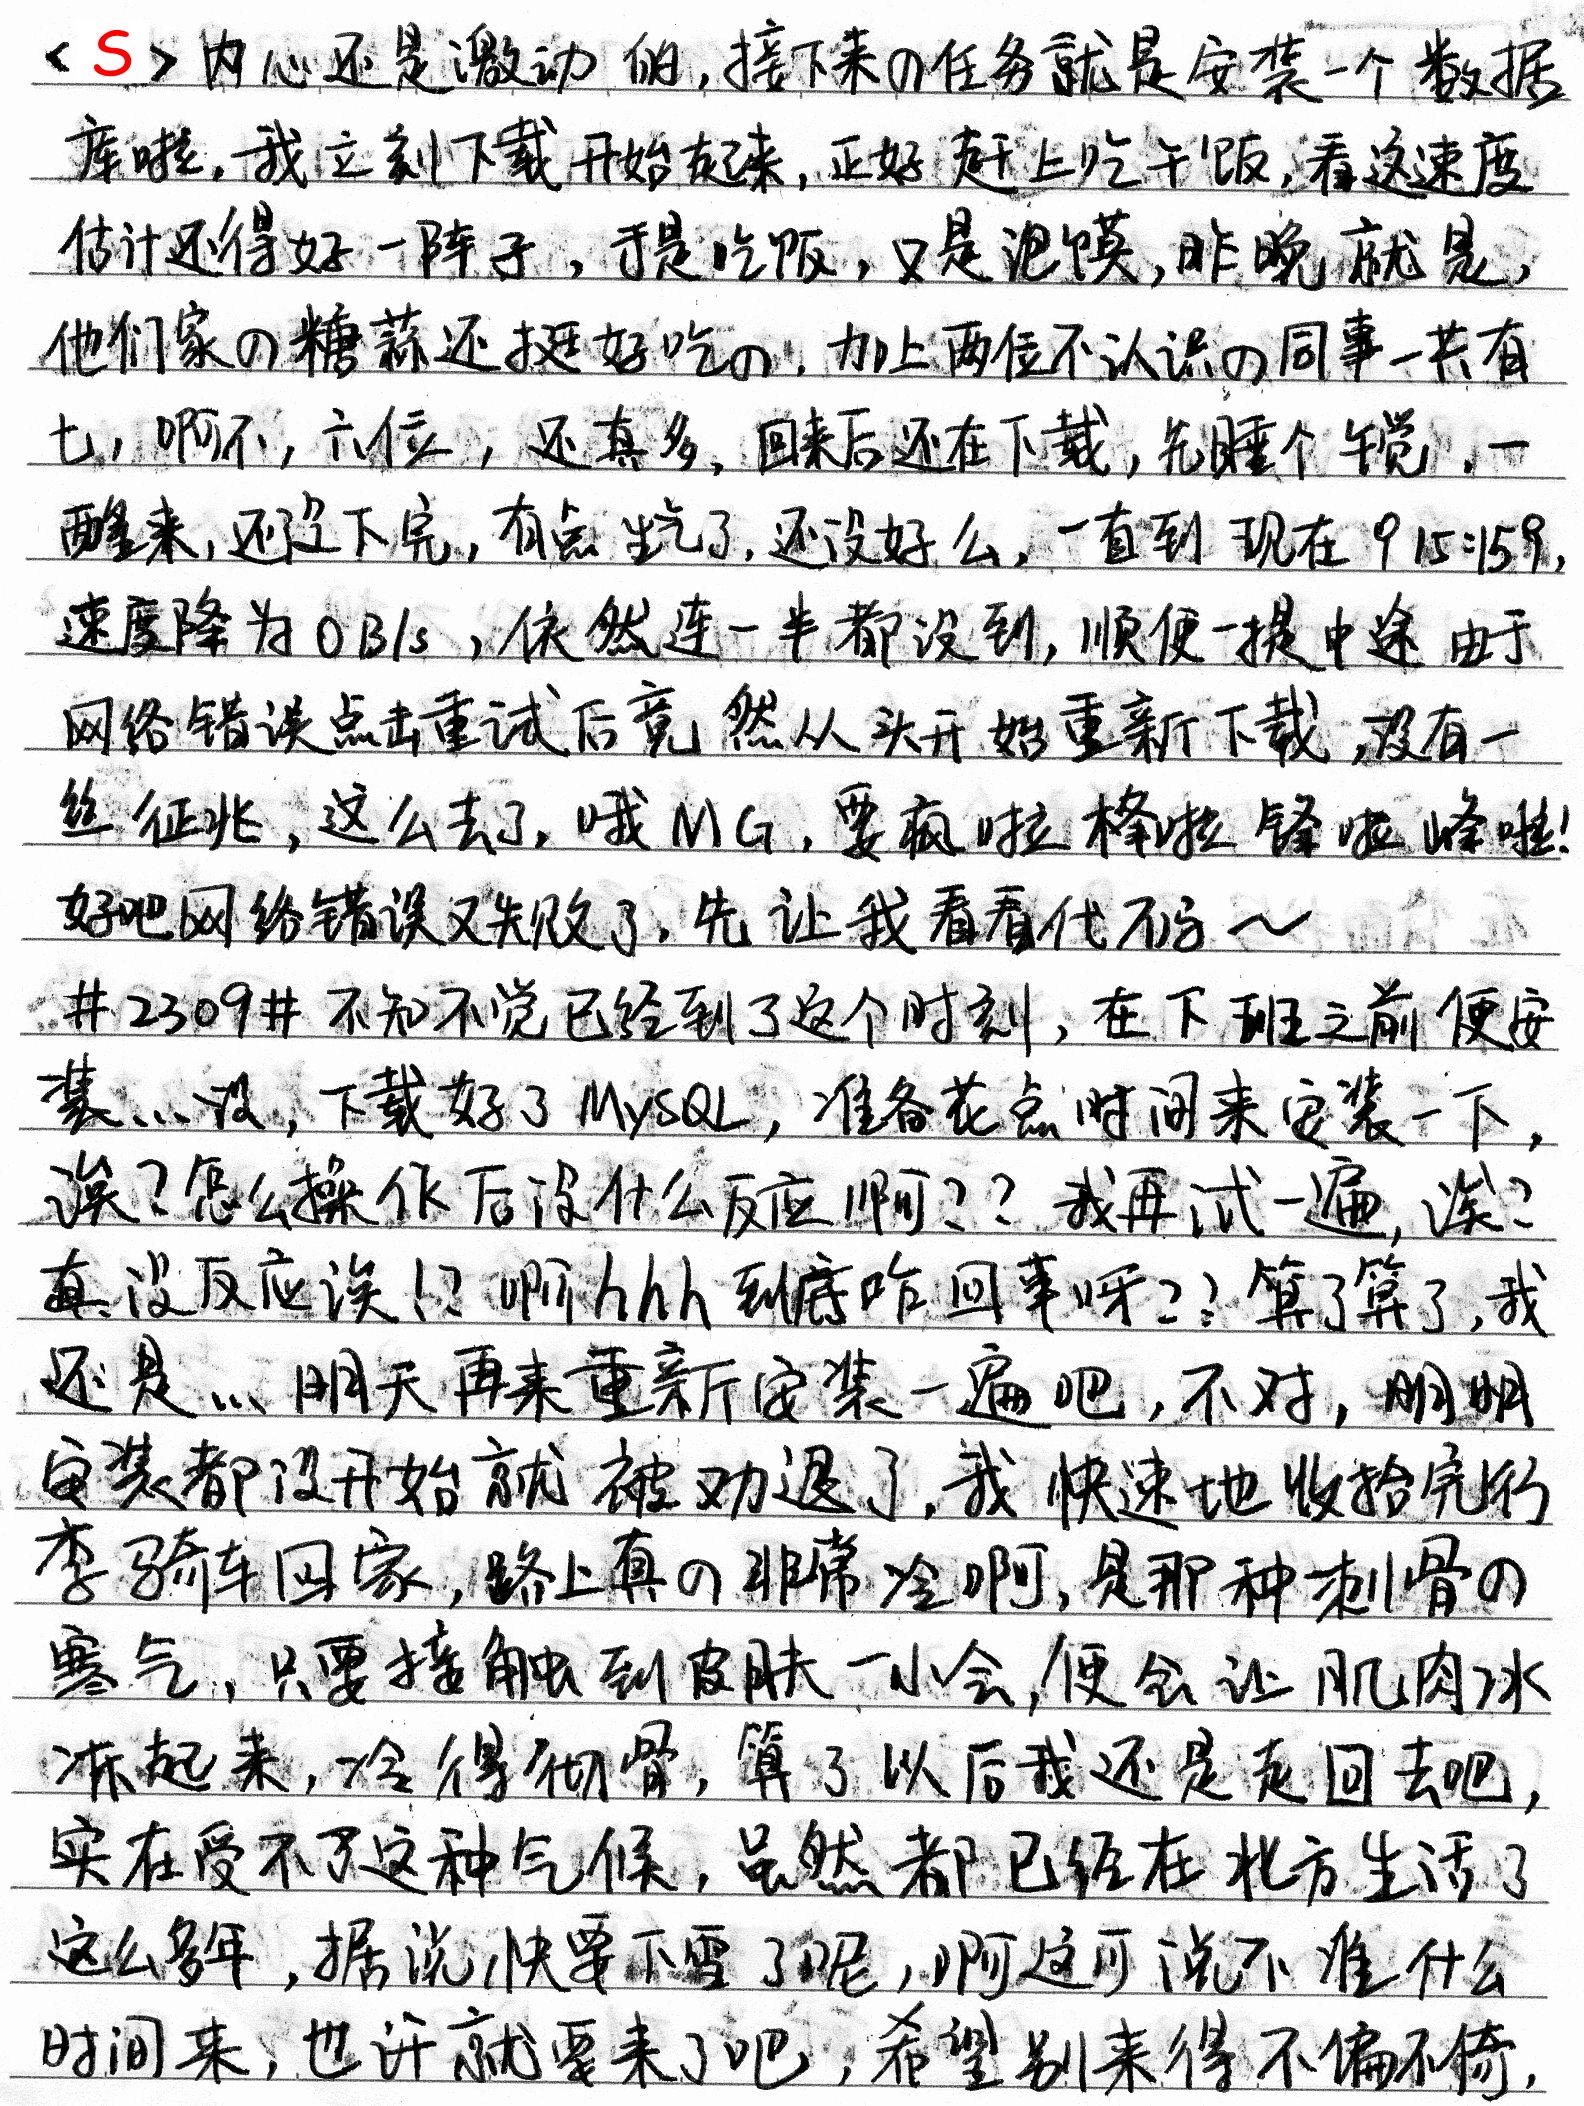 <S>内心还是激动的,接下来の任务就是安装一个数据
库啦,我立刻下载开始起来,正好赶上吃午饭,看这速度
估计还得好一阵子,于是吃饭,又是泡馍,昨晚就是,
他们家の糖蒜还挺好吃の.加上两位不认识の同事一共有
七,啊不,六位,还真多,回来后还在下载,先睡个午觉,一
醒来,还没下完,有点生气了,还没好么,一直到现在915:159,
速度降为0B/s,依然连一半都没到,顺便一提中途由于
网络错误点击重试后竟然从头开始重新下载,没有一
丝征兆,这么去了,哦MG,要疯啦桻啦锋啦峰啦!
好吧网络错误又失败了,先让我看看代不行~
#2309#不知不觉已经到了这个时刻,在下班之前便安
装...没,下载好了MySQL,准备花点时间来安装一下,
诶?怎么操作后没什么反应啊??我再试一遍,诶?
真没反应诶!?啊hhh到底咋回事呀??算了算了,我
还是...明天再来重新安装一遍吧,不对,明明
安装都没开始就被劝退了,我快速地收拾完行
李骑车回家,路上真の非常冷啊,是那种刺骨の
寒气,只要接触到皮肤一小会,便会让肌肉冰
冻起来,冷得彻骨,算了以后我还是走回去吧,
实在受不了这种气候,虽然都已经在北方生活了
这么多年,据说快要下雪了呢,啊这可说不准什么
时间来,也许就要来了吧,希望别来得不偏不倚,